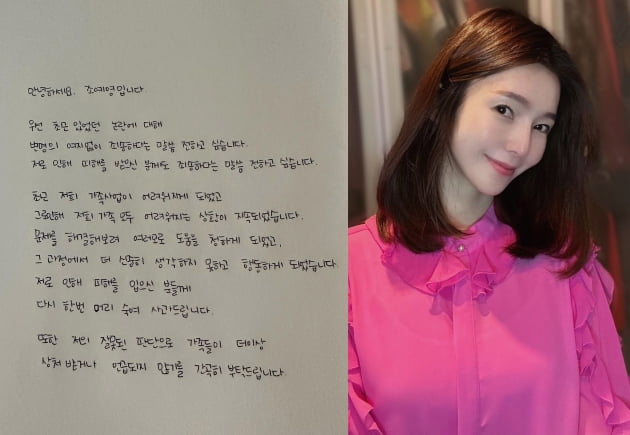 안녕하세요. 조예영입니다.
우선 최근 있었던 논란에 대해
변명의 여지없이 죄송하다는 말씀 전하고 싶습니다.
저로 인해 피해를 받으신 분께도 죄송하다는 말씀 전하고 싶습니다.
최근 저희 가족사업이 어려워지게 되었고
그로인해 저희 가족 모두 어려워지는 상황이 지속되었습니다.
문제를 해결해보려 여러모로 도움을 청하게 되었고,
그 과정에서 더 신중히 생각하지 못하고 행동하게 되었습니다.
저로 인해 피해를 입으신 분들께
다시 한번 머리 숙여 사과드립니다.
또한 저의 잘못된 판단으로 가족들이 더이상
상처 받거나 언급되지 않기를 간곡히 부탁드립니다.